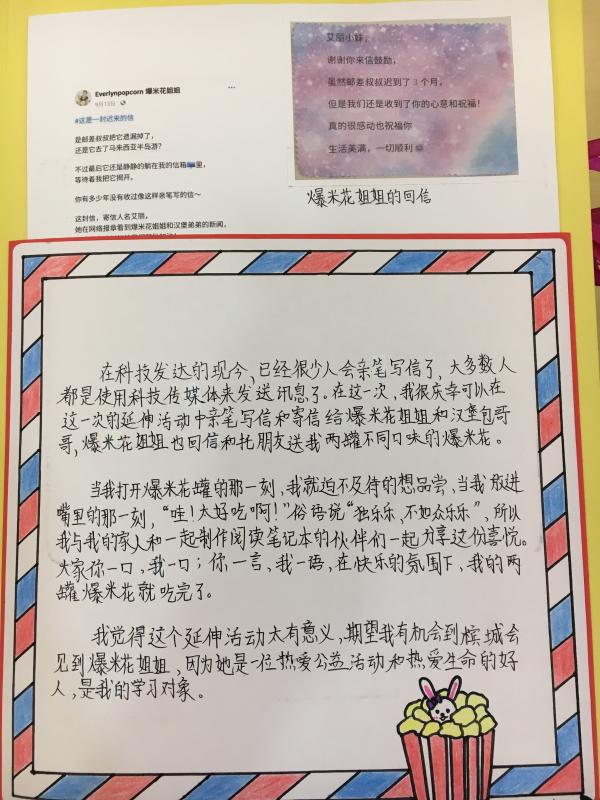 Everlynpopcorn 爆米花姐姐
9月13日
#这是一封迟来的信
是邮差叔叔把它遗漏掉了，
还是它去了马来西亚半岛游？
不过最后它还是静静的躺在我的信箱里，
等待着我把它揭开。
你有多少年没有收过像这样亲笔写的信～
这封信，寄信人名艾丽。
她在网络报章看到爆米花姐姐和汉堡弟弟的新闻，
艾丽小妹，
谢谢你来信鼓励，
虽然邮差叔叔迟到了 3 个月，
但是我们还是收到了你的心意和祝福！
真的很感动也祝福你
生活美满，一切顺利
爆米花姐姐的回信
在科技发达的现今，已经很少人会亲笔写信了，大多数人
都是使用科技传媒体来发送讯息了。在这一次，我很庆幸可以在
这一次的延伸活动中亲笔写信和寄信给爆米花姐姐和汉堡包哥
哥，爆米花姐姐也回信和托朋友送我两罐不同口味的爆米花。
当我打开爆米花罐的那一刻，我就迫不及待的想品尝，当我放进
嘴里的那一刻，“哇！太好吃啊！”俗语说“独乐乐，不如众乐乐”，所以
我与我的家人和一起制作阅读笔记本的伙伴们一起分享这份喜悦。
大家你一口，我一口；你一言，我一语，在快乐的氛围下，我的两
罐爆米花就吃完了。
我觉得这个延伸活动太有意义，期望我有机会到槟城会
见到爆米花姐姐，因为她是一位热爱公益活动和热爱生命的好
人，是我的学习对象。